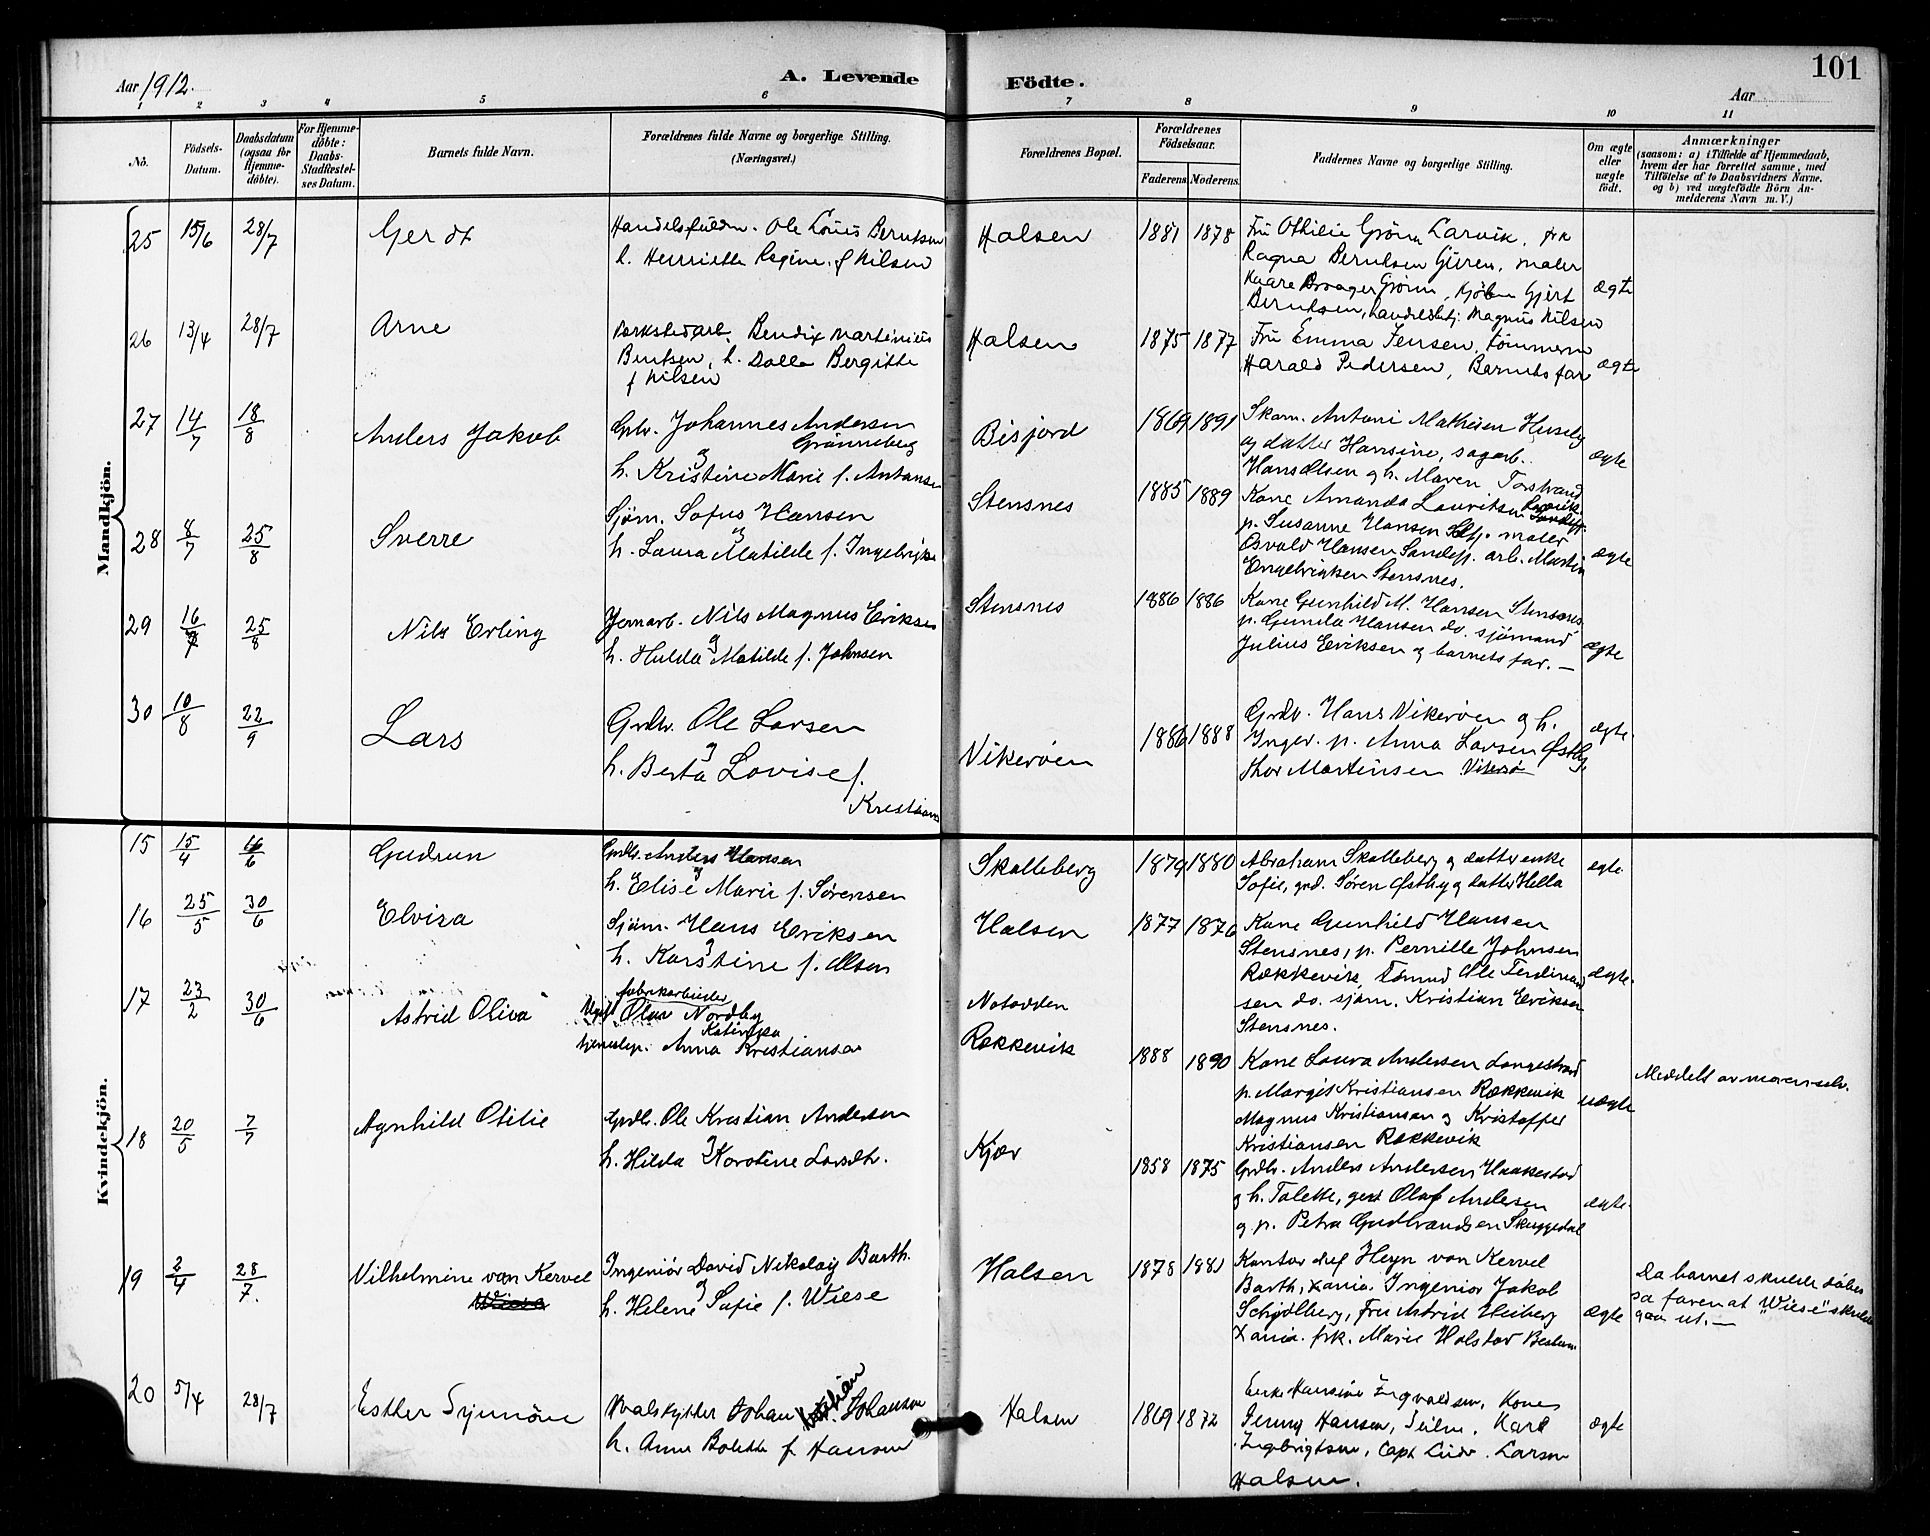 101
Aar 1912.
A. Levende
Födte.
Aar
1 2 3 4 5 6 7 8 9 10 11
No.
Födsels-
Datum.
Daabsdatum
(ogsaa for
Hjemme-
döbte).
For Hjemme-
döbte:
Daabs-
Stadfæstel-
ses Datum.
Barnets fulde Navn.
Forældrenes fulde Navne og borgerlige Stilling.
(Næringsvei.)
Forældrenes Bopæl.
Forældrenes
Födselsaar.
Faderens Moderens.
Faddernes Navne og borgerlige Stilling.
Om ægte
eller
uægte
födt.
Anmærkninger
(saasom: a) i Tilfælde af Hjemmedaab,
hvem der har forrettet samme, med
Tilföielse af to Daabsvidners Navne.
og b) ved uægtefödte Börn An-
melderens Navn m. V.)
Mandkjön.
25 15/6 28/7 Gerdt
Handelsfuldm. Ole Louis Berntsen
h. Henriette Regine f Nilsen
Halsen 1881 1878
Fru Othilie Grønn Larvik, frk
Ragna Berntsen Guren, maler
Kaare Draager Grønn, Kjøbm Gjert
Berntsen, handelsbetj. Magnus Nilsen
ægte
26 13/4 28/7 Arne
Verkstedarb. Bendix Martinius
Bentsen, h. Dolle Bergitte
f Nilsen
Halsen 1875 1877
Fru Emma Jensen, tömmerm
Harald Pedersen, Barnets far
ægte
27 14/7 18/8 Anders Jakob
Grdv. Johannes Andersen
Grønneberg
og
h. Kristine Marie f. Antonsen
Bisjord 1869 1891
Skom. Antoni Mathisen Huseby
og datter Hansine, sagarb.
Hans Olsen og h. Maren Torstrand
ægte
28 8/7 25/8 Sverre
Sjøm. Sofus Hansen
og
h. Laura Matilde f. Ingebrigtsen
Stensnes 1885 1889
Kone Amanda Lauritsen Larvik
p. Susanne Hansen Sdfj. maler
Osvald Hansen Sandefj. arb. Martin
Engebrigtsen Stensnes.
ægte
29 16/7 25/8 Nils Erling
Jernarb. Nils Magnus Eriksen
og
h. Hulda Matilde f. Johnsen
Stensnes 1886 1886
Kone Gunhild M. Hansen Stensnes
p. Gunda Hansen do. sjömand
Julius Eriksen og barnets far. —
ægte
30 10/8 22/9 Lars
Grdbr. Ole Larsen
og
h. Berta Lovise f.
Kristians
Vikerøen 1886 1888
Grdbr. Hans Vikerøen og h.
Inger. p. Anna Larsen Østby
Thor Martinsen Vikerø
ægte.
Kvindekjön.
15 15/4 16/6 Gudrun
Grdbr. Anders Hansen
og
h. Elise Marie f. Sørensen
Skalleberg 1879 1880
Abraham Skalleberg og datter enke
Sofie, grd. Søren Østby og datter Hella
ægte.
16 25/5 30/6 Elvira
Sjøm. Hans Eriksen
og
h. Karstine f. Olsen
Halsen 1877 1876
Kone Gunhild Hansen
Stensnes, p. Pernille Johnsen
Rækkevik, Tömmd Ole Ferdinand
sen do. sjøm. Kristian Eriksen
Stensnes.
ægte.
17 23/2 30/6 Astrid Oliva
fabrikarbeider
Ungk. Olav Nordby
Katinka
tjenestep. Anna Kristiansen
Notodden
Rækkevik
1888 1890
Kone Laura Andersen Langestrand
p. Margit Kristiansen Rækkevik
Magnus Kristiansen og Kristoffer
Kristiansen Rækkevik
uægte
Meddelt av moren selv.
18 20/5 7/7 Agnhild Otilie
Grdbr. Ole Kristian Andersen
og
h. Hilda Karstine Larsdtr.
Kjær 1858 1875
Grdbr. Anders Andersen Haakestad
og h. Talette, grd Olaf Andersen
og p. Petra Gudbrandsen Skuggedal
ægte.
19 2/4 28/7. Vilhelmine van Kervel
Wiese
Ingeniör David Nikolaiy Barth.
og
h. Helene Sofie f. Wiese
Halsen 1878 1881
Kontorchef Heyn van Kervel
Barth, Xania. Ingeniör Jakob
Schjölberg, Fru Astrid Heiberg
Xania. frk. Marie Holstad Bestum
ægte
Da barnet skulde döbes
sa faren at "Wiese" skulde
gaa ut. —
20 5/4 28/7 Esther Synnöve
Hvalskytter Johan Kristian Johansen
h. Anna Bolette f Hansen
Halsen 1869 1872
Enke Hansine Ingvaldsen, Kone
Jenny Hansen, Seilm. Karl
Ingebrigtsen, Capt Ludv. Larsen
Halsen.
ægte